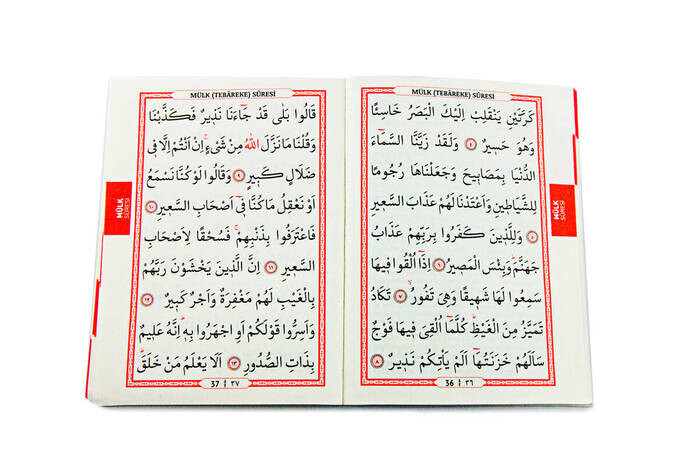 MÜLK (TEBÂREKE) SÛRESİ
كَرَّتَيْنِ يَنْقَلِبْ اِلَيْكَ الْبَصَرُ خَاسِئًا
وَهُوَ حَسِيرٌ ﴿٤﴾ وَلَقَدْ زَيَّنَّا السَّمَٓاءَ
الدُّنْيَا بِمَصَابِيحَ وَجَعَلْنَاهَا رُجُومًا
لِلشَّيَاطِينِ وَاَعْتَدْنَا لَهُمْ عَذَابَ السَّعِيرِ
﴿٥﴾ وَلِلَّذِينَ كَفَرُوا بِرَبِّهِمْ عَذَابُ
جَهَنَّمَ وَبِئْسَ الْمَصِيرُ ﴿٦﴾ اِذَٓا اُلْقُوا فِيهَا
سَمِعُوا لَهَا شَهِيقًا وَهِيَ تَفُورُ ﴿٧﴾ تَكَادُ
تَمَيَّزُ مِنَ الْغَيْظِ كُلَّمَٓا اُلْقِيَ فِيهَا فَوْجٌ
سَاَلَهُمْ خَزَنَتُهَٓا اَلَمْ يَاْتِكُمْ نَذِيرٌ ﴿٨﴾
36 ٣٦
MÜLK
SÛRESİ
MÜLK (TEBÂREKE) SÛRESİ
قَالُوا بَلٰى قَدْ جَٓاءَنَا نَذِيرٌ فَكَذَّبْنَا
وَقُلْنَا مَا نَزَّلَ اللّٰهُ مِنْ شَيْءٍ اِنْ اَنْتُمْ اِلَّا فِي
ضَلَالٍ كَبِيرٍ ﴿٩﴾ وَقَالُوا لَوْ كُنَّا نَسْمَعُ
اَوْ نَعْقِلُ مَا كُنَّا فِٓي اَصْحَابِ السَّعِيرِ ﴿١٠﴾
فَاعْتَرَفُوا بِذَنْبِهِمْ فَسُحْقًا لِاَصْحَابِ
السَّعِيرِ ﴿١١﴾ اِنَّ الَّذِينَ يَخْشَوْنَ رَبَّهُمْ
بِالْغَيْبِ لَهُمْ مَغْفِرَةٌ وَاَجْرٌ كَبِيرٌ ﴿١٢﴾
وَاَسِرُّوا قَوْلَكُمْ اَوِ اجْهَرُوا بِهٖ اِنَّهُ عَلِيمٌ
بِذَاتِ الصُّدُورِ ﴿١٣﴾ اَلَا يَعْلَمُ مَنْ خَلَقَ
37 ٣٧
MÜLK
SÛRESİ